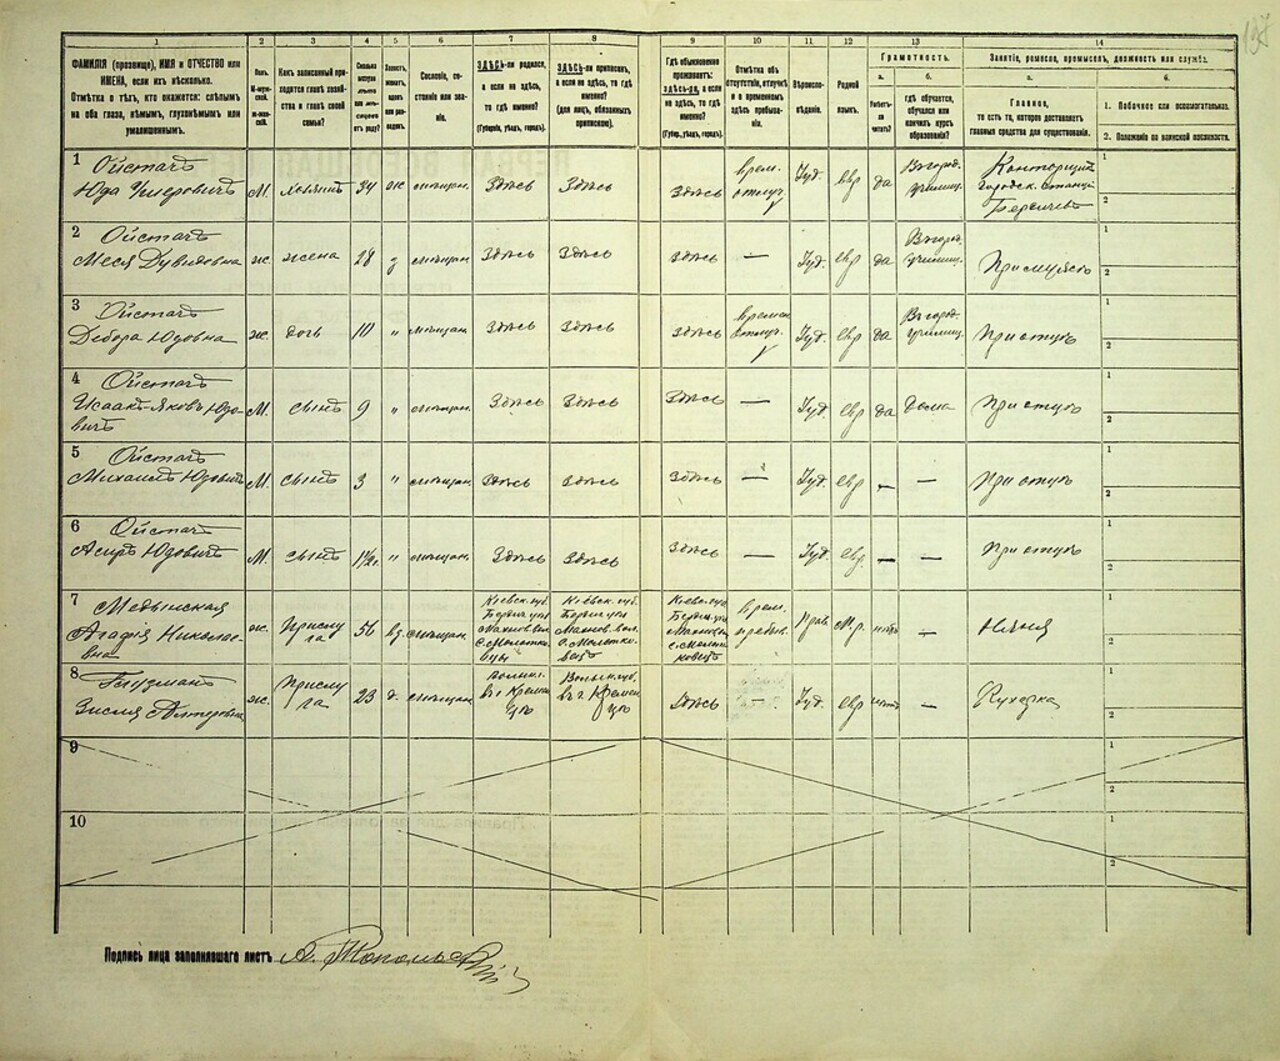 197
1 2 3 4 5 6 7 8 9 10 11 12 13 14
ФАМИЛІЯ (прозвище), ИМЯ и ОТЧЕСТВО или
ИМЕНА, если ихъ нѣсколько.
Отмѣтка о тѣхъ, кто окажется: слѣпымъ
на оба глаза, нѣмымъ, глухонѣмымъ или
умалишеннымъ.
Полъ.
М-муж-
ской.
ж-жен-
скій.
Какъ записанный при-
ходится главѣ хозяй-
ства и главѣ своей
семьи?
Сословіе, со-
стояніе или зва-
ніе.
ЗДѢСЬ-ли родился,
а если не здѣсь,
то гдѣ именно?
(Губернія, уѣздъ, городъ).
ЗДѢСЬ-ли приписанъ,
а если не здѣсь, то гдѣ
именно?
(для лицъ, обязанныхъ
припискою).
Гдѣ обыкновенно
проживаетъ:
здѣсь-ли, а если
не здѣсь, то гдѣ
именно?
(Губер., уѣздъ, городъ).
Отмѣтка объ
отсутствіи, отлучкѣ
и о временномъ
здѣсь пребыва-
ніи.
Вѣроиспо-
вѣданіе.
Родной
языкъ.
Грамотность.
а. б.
Умѣетъ-
ли
читать?
гдѣ обучается,
обучался или
кончилъ курсъ
образованія?
Занятіе, ремесло, промыселъ, должность или служба.
а. б.
Главное,
то есть то, которое доставляетъ
главныя средства для существованія.
1. Побочное или вспомогательное.
2. Положеніе по воинской повинности.
1 Ойстачъ
Юда Умеровичъ М. хозяинъ 34 ж мѣщан. Здѣсь Здѣсь Здѣсь врем. отлуч. Іуд. евр да Въ город. училищ. Конторщикъ городск. станціи Бердичевъ 1 2
2 Ойстачъ
Меся Дувидовна ж. жена 28 з мѣщан. Здѣсь Здѣсь Здѣсь — Іуд. евр да Въ город. училищ. При мужѣ 1 2
3 Ойстачъ
Дебора Юдовна ж. дочь 10 " мѣщан. Здѣсь Здѣсь Здѣсь времен. отлуч. Іуд. евр да Въ город. училищ. При отцѣ 1 2
4 Ойстачъ
Исаакъ-Яковъ Юдо-
вичъ М. сынъ 9 " мѣщан. Здѣсь Здѣсь Здѣсь — Іуд. евр да Дома При отцѣ 1 2
5 Ойстачъ
Михаилъ Юдовичъ М. сынъ 3 " мѣщан. Здѣсь Здѣсь Здѣсь — Іуд. евр — — При отцѣ 1 2
6 Ойстачъ
Асиръ Юдовичъ М. сынъ 1½ г. " мѣщан. Здѣсь Здѣсь Здѣсь — Іуд. евр. — — При отцѣ 1 2
7 Медынская
Агафія Николае-
вна ж. Прислу
га 56 вд. мѣщан. Кіевск. губ. Бердич. уѣз. Кіевск. губ. Бердич. уѣз. Кіевс. губ. Бердич. уѣз. врем. пребыв. Прав. М.р. нѣтъ — Няня 1 2
8 Глузманъ
Зисля Алтеровна ж. Прислу
га 23 д. мѣщан. Волын. г. въ г. Кременцѣ Волын. губ. въ г. Кременцѣ Здѣсь — Іуд. евр нѣтъ — Кухарка 1 2
9 1 2
10 1 2
Подпись лица заполнявшаго листъ А. Топольскій